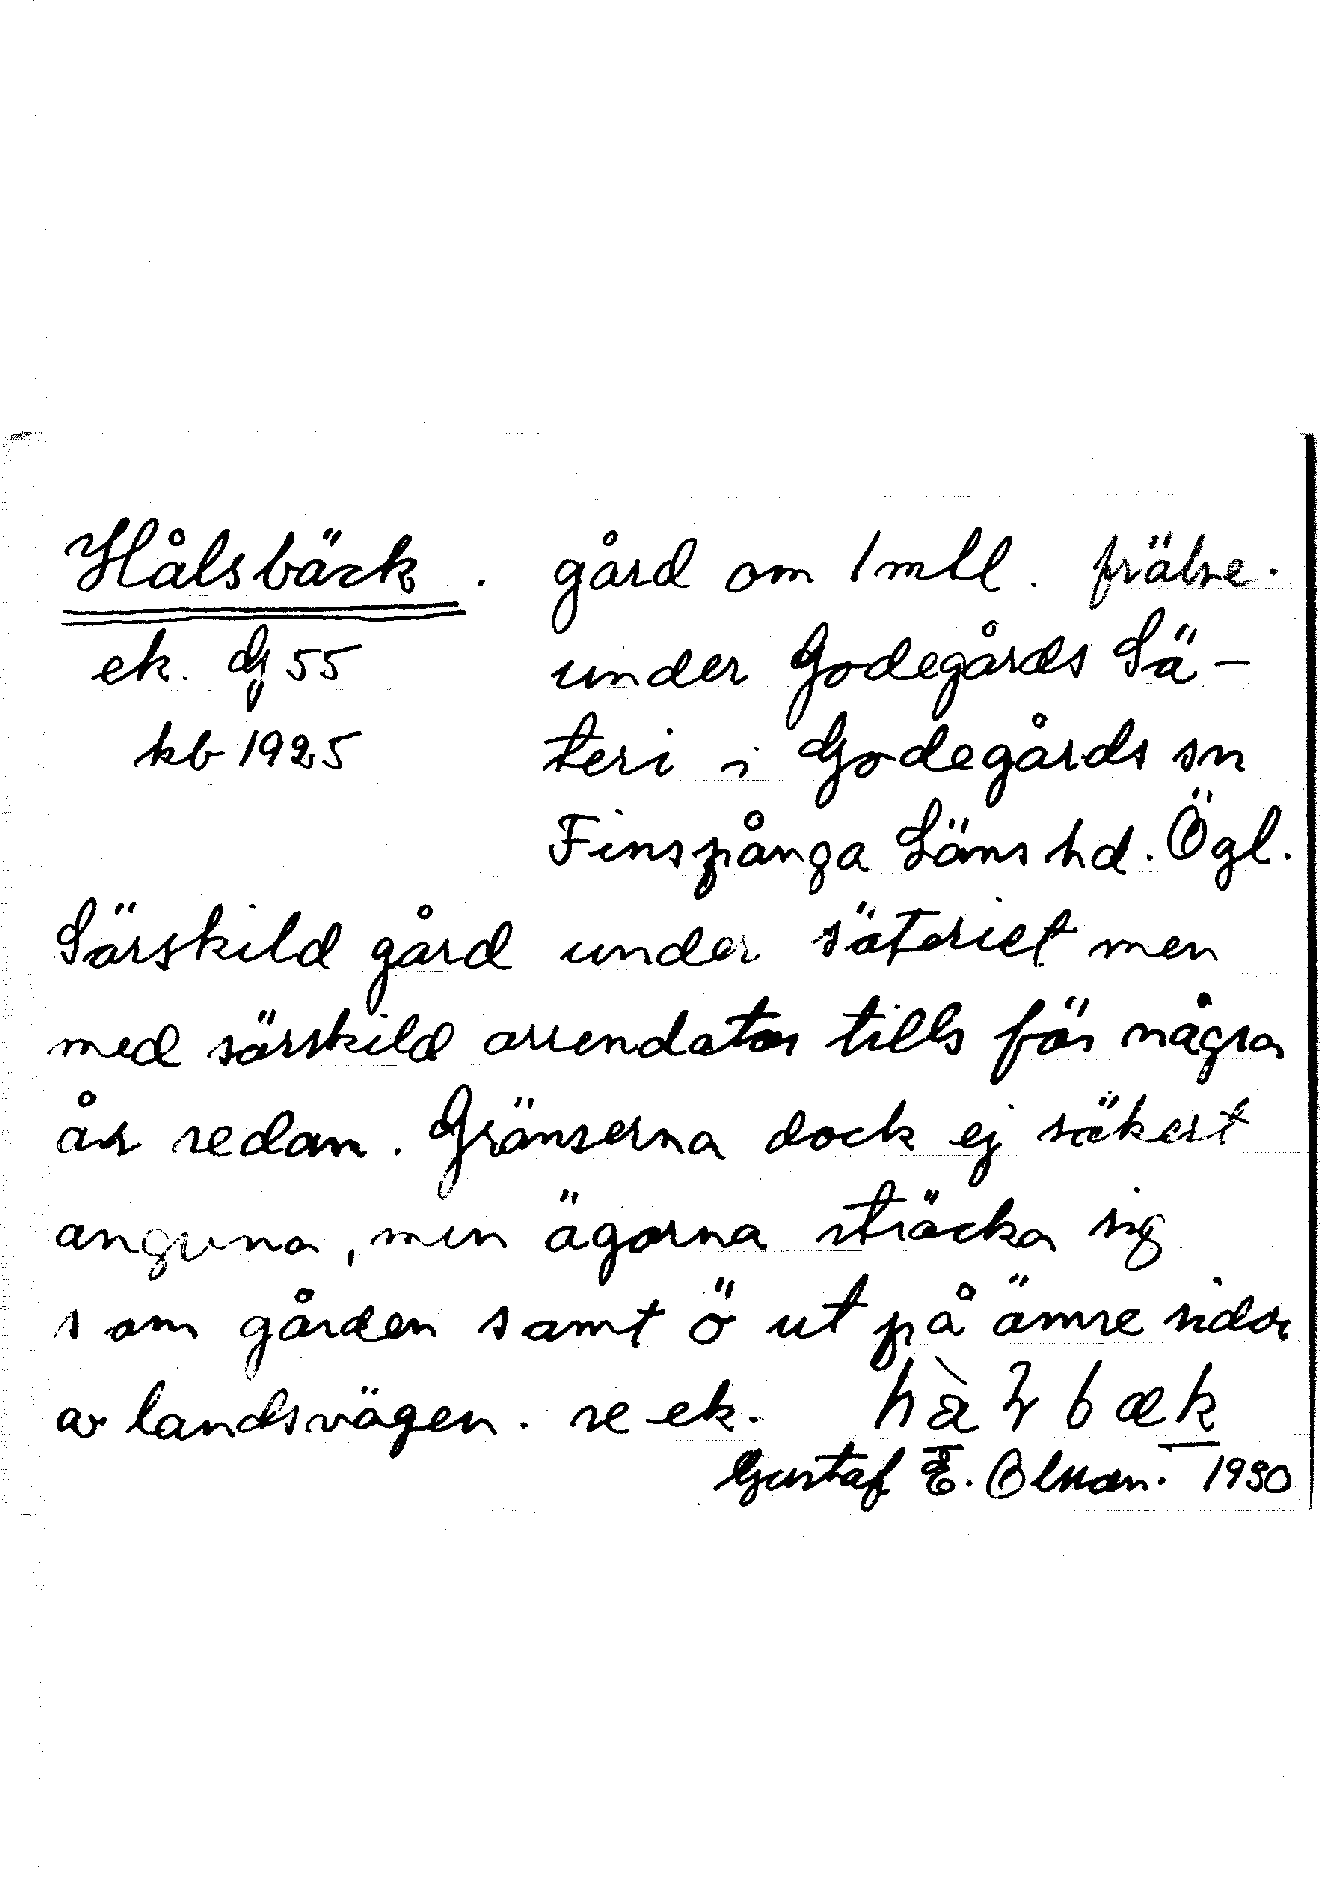 Hålsbäck. gård om 1 mtl. frälse.
ek. Dj 55 under Godegårds Sä-
kb 1925 teri i Godegårds sn
Finspånga Läns hd. Ögl.
Särskild gård under säteriet men
med särskild arrendator tills för några
år sedan. Gränserna dock ej säkert
angivna, men ägorna sträcka sig
s om gården samt ö ut på ömse sidor
av landsvägen. se ek.
Gustaf E. Olsson. 1930